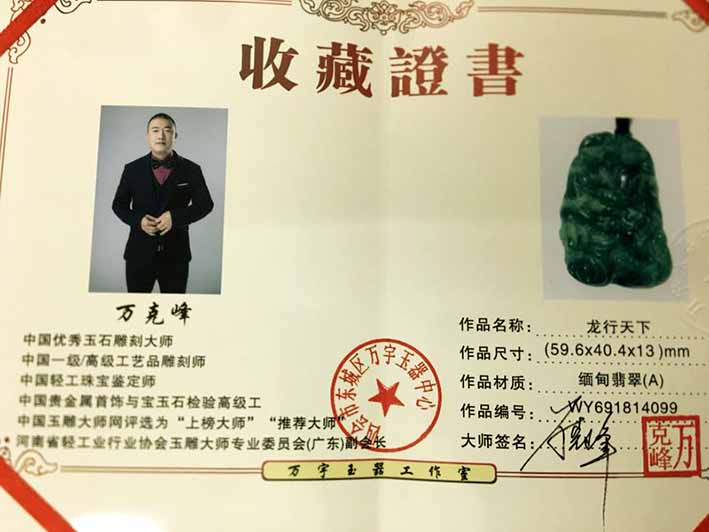 收藏證書
万克峰
中国优秀玉石雕刻大师
中国一级/高级工艺品雕刻师
中国轻工珠宝鉴定师
中国贵金属首饰与宝玉石检验高级工
中国玉雕大师网评选为“上榜大师”“推荐大师”
河南省轻工业行业协会玉雕大师专业委员会(广东)副会长
作品名称: 龙行天下
作品尺寸: (59.6x40.4x13)mm
作品材质: 缅甸翡翠(A)
作品编号: WY691814099
大师签名:
四会市东城区万宇玉器中心
万克峰
万宇玉器工作室